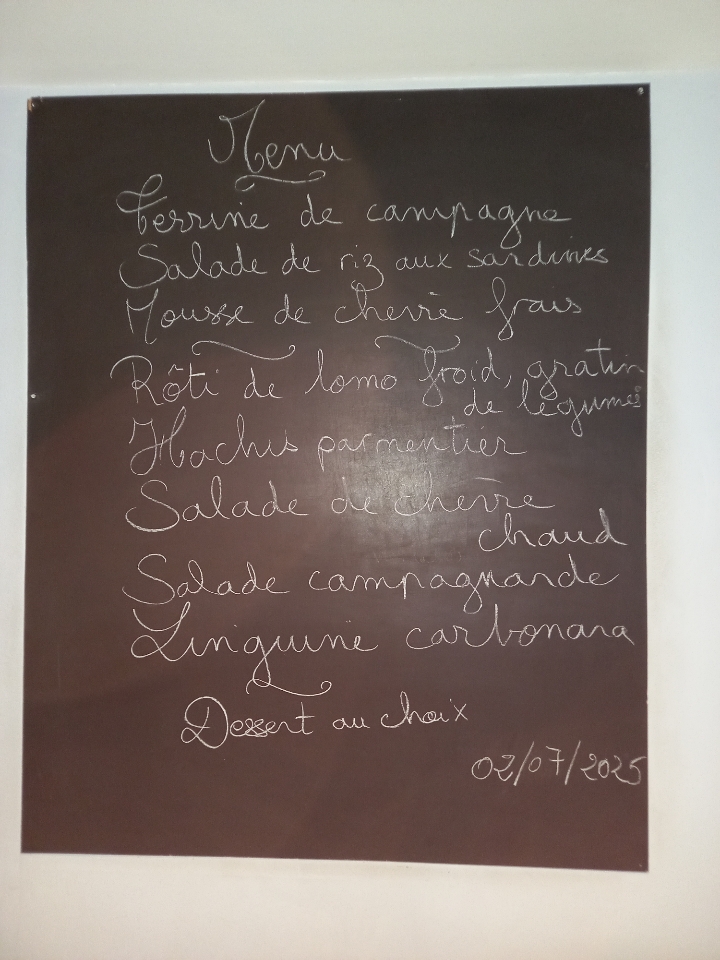 Menu
Terrine de campagne
Salade de riz aux sardines
Mousse de chevre frais
Rôti de lomo froid, gratin
de légumes
Hachis parmentier
Salade de chevre
chaud
Salade campagnarde
Linguine carbonara
Dessert au choix
02/07/2025